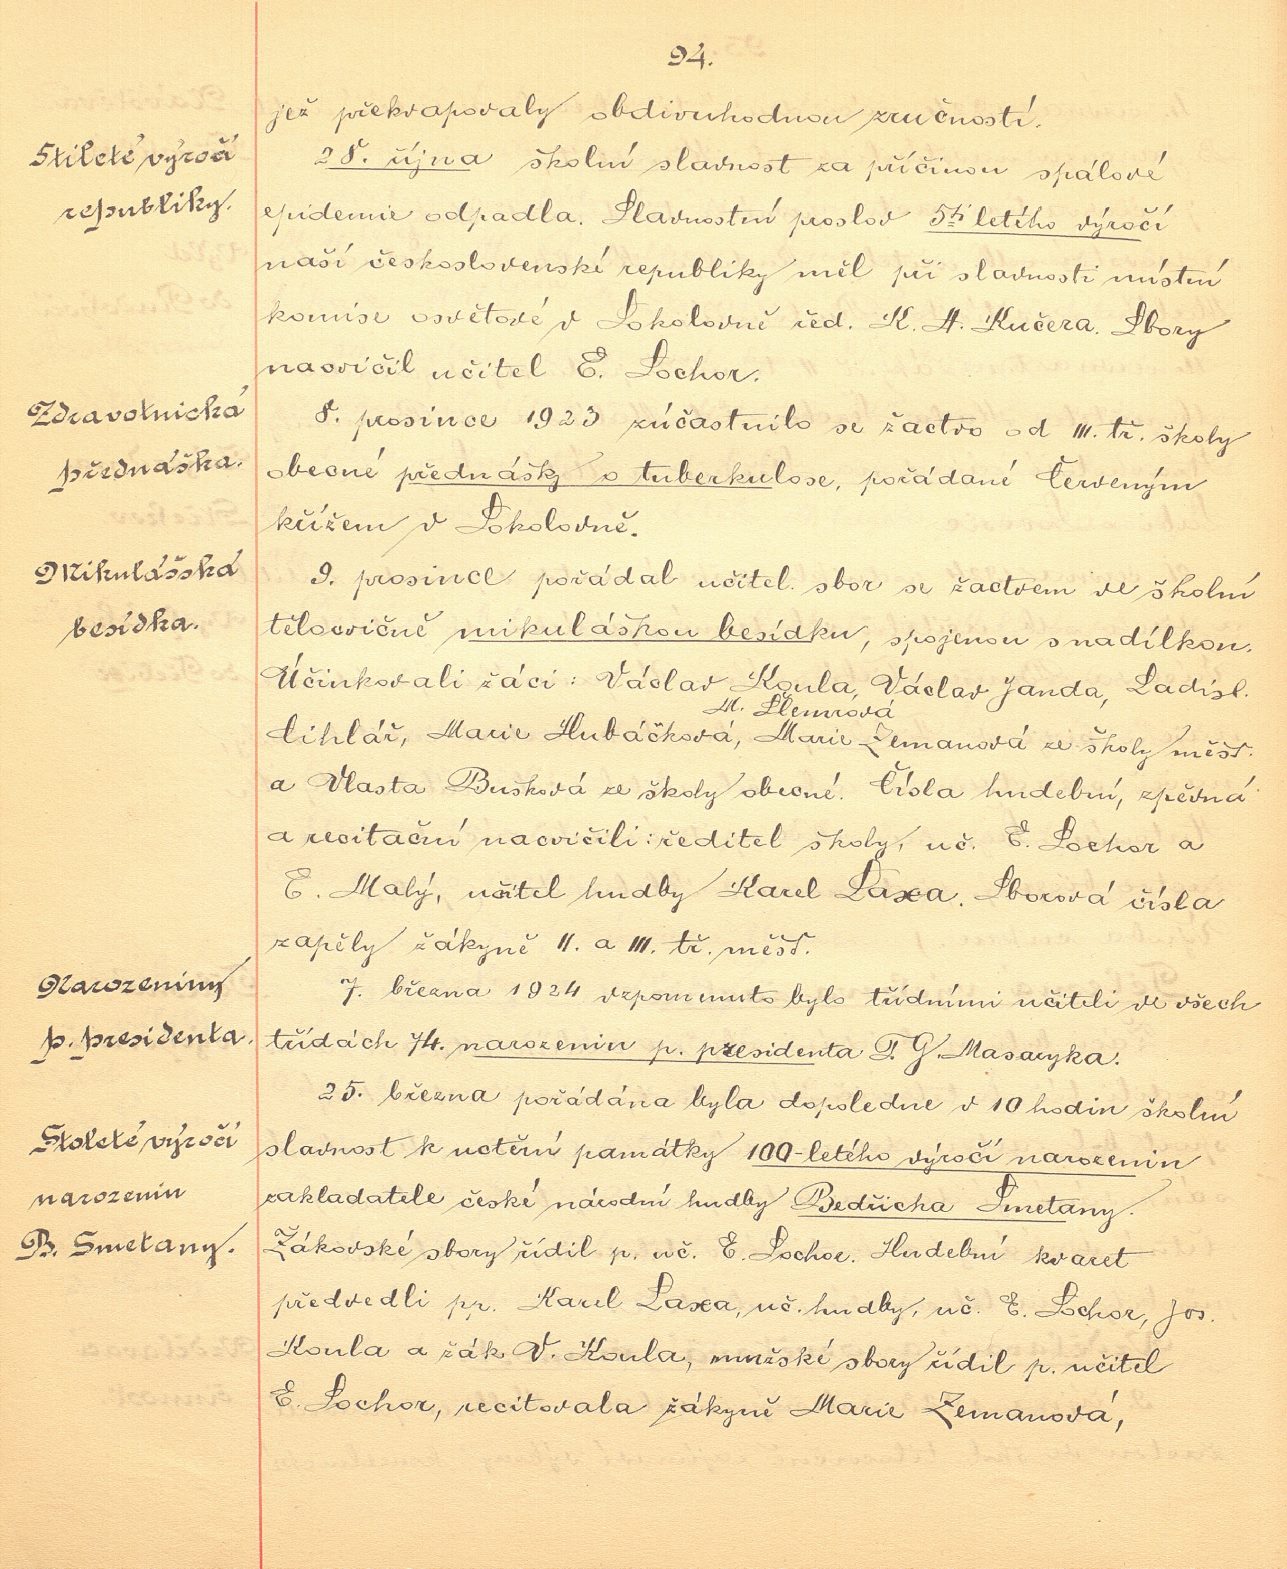 94.
jež překvapovaly obdivuhodnou zručností.
5tileté výročí
28. října školní slavnost za příčinou spálové
republiky.
epidemie odpadla. Slavnostní proslov 5ti letého výročí
naší československé republiky měl při slavnosti místní
komise osvětové v Sokolovně řed. K. A. Kučera. Sbory
nacvičil učitel E. Lochor.
Zdravotnická
8. prosince 1923 zúčastnilo se žactvo od III. tř. školy
přednáška.
obecné přednášky o tuberkulose, pořádané Červeným
křížem v Sokolovně.
Mikulášská
9. prosince pořádal učitel. sbor se žactvem ve školní
besídka.
tělocvičně mikulášskou besídku, spojenou s nadílkou.
Účinkovali žáci: Václav Koula, Václav Janda, Ladisl.
M. Šlemrová
Cihlář, Marie Hubáčková, Marie Zemanová ze školy měšť.
a Vlasta Bušková ze školy obecné. Čísla hudební, zpěvná
a recitační nacvičili: ředitel školy, uč. E. Lochor a
E. Malý, učitel hudby Karel Laxa. Sborová čísla
zapěly žákyně II. a III. tř. měšť.
Narozeniny
7. března 1924 vzpomenuto bylo třídními učiteli ve všech
p. presidenta.
třídách 74. narozenin p. presidenta T. G. Masaryka.
25. března pořádána byla dopoledne v 10 hodin školní
Stoleté výročí
slavnost k uctění památky 100-letého výročí narozenin
narozenin
zakladatele české národní hudby Bedřicha Smetany.
B. Smetany.
Žákovské sbory řídil p. uč. E. Lochor. Hudební kvaret
předvedli pp. Karel Laxa, uč. hudby, uč. E. Lochor, Jos.
Koula a žák V. Koula, mužské sbory řídil p. učitel
E. Lochor, recitovala žákyně Marie Zemanová,